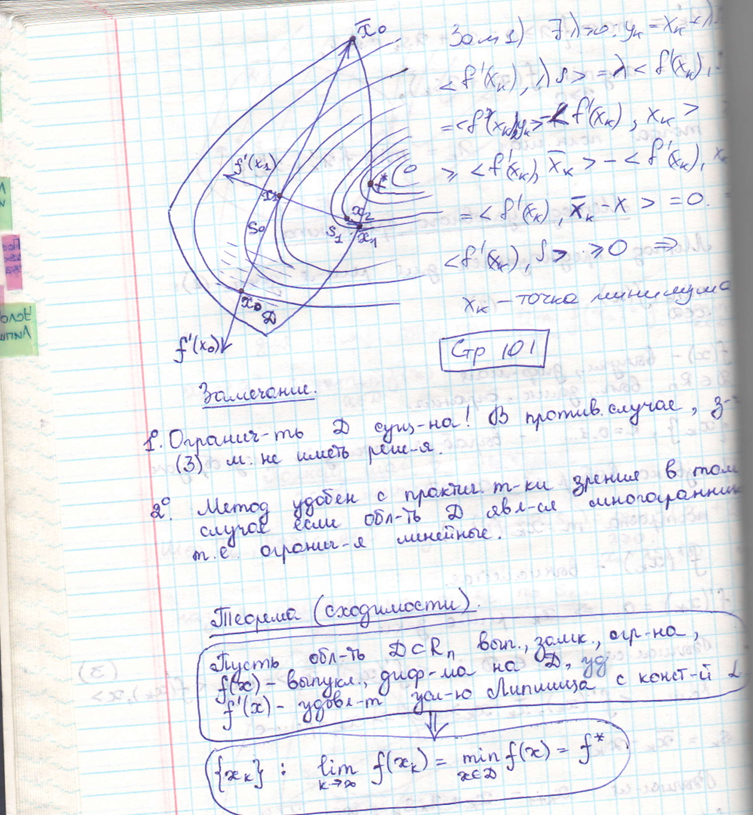 x̄₀
f'(x₁)
f*
x₁
S₀
x₂
S₁
x₁
x₀
D
f'(x₀)
Зам 1) ∃ λ>0: yₖ = xₖ + λ
<f'(xₖ), λS> = λ<f'(xₖ),
= <f'(xₖ), yₖ> - <f'(xₖ), xₖ>
⩾ <f'(xₖ), x̄ₖ> - <f'(xₖ), xₖ
= <f'(xₖ), x̄ₖ - x> = 0.
<f'(xₖ), S> ⩾ 0 ⇒
xₖ – точка минимума
Стр 101
Замечание.
1°. Огранич-ть D сущ-на! В против. случае, з-
(3) м. не иметь реш-я.
2°. Метод удобен с практич. т-ки зрение в том
случае если обл-ть D явл-ся многогранник
т.е. огранич-я линейные.
Теорема (сходимости).
Пусть обл-ть D⊂Rₙ вып., замк., огр-на,
f(x) – выпукл., диф-ма на D, уд
f'(x) – удовл-т усл-ю Липшица с конст-й L
⇓
{xₖ} : lim f(xₖ) = min f(x) = f*
k→∞ x∈D
(3)